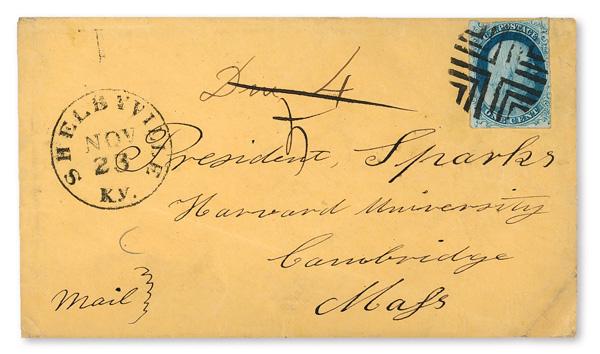 Due 4
5
U.S. POSTAGE
ONE CENT
SHELBYVILLE
NOV
23
Ky.
President, Sparks
Harvard University
Cambridge
Maſs
Mail